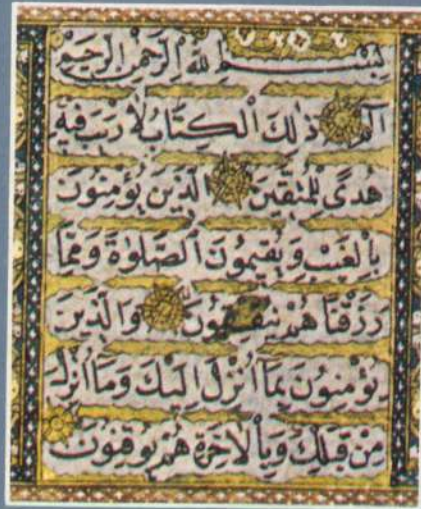 بِسْمِ اللهِ الرَّحْمٰنِ الرَّحِيْمِ
الم ذٰلِكَ الْكِتَابُ لَا رَيْبَ فِيْهِ
هُدًى لِلْمُتَّقِيْنَ الَّذِيْنَ يُؤْمِنُوْنَ
بِالْغَيْبِ وَيُقِيْمُوْنَ الصَّلٰوةَ وَمِمَّا
رَزَقْنَا هُمْ يُنْفِقُوْنَ وَالَّذِيْنَ
يُؤْمِنُوْنَ بِمَا اُنْزِلَ اِلَيْكَ وَمَا اُنْزِلَ
مِنْ قَبْلِكَ وَبِالْاٰخِرَةِ هُمْ يُوْقِنُوْنَ